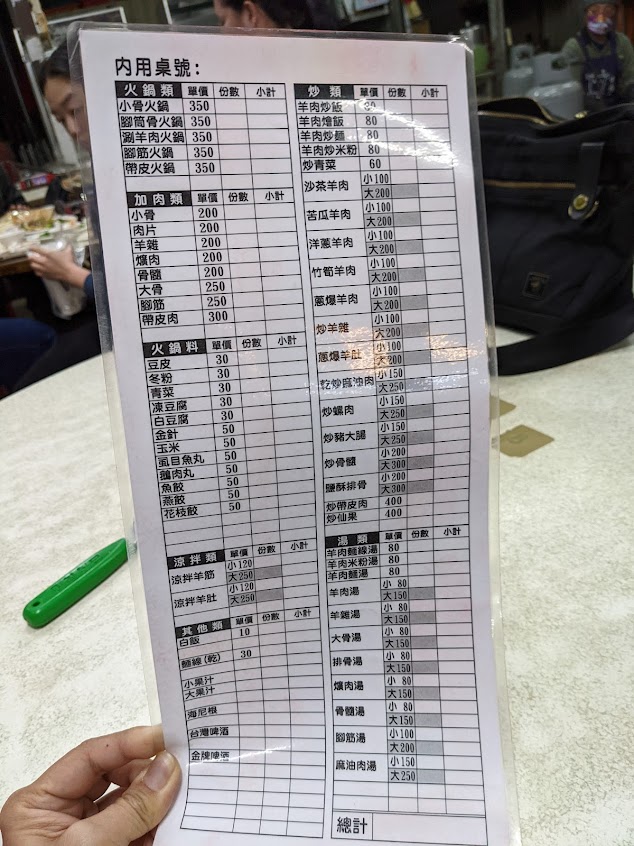 内用桌號：
火鍋類 單價 份數 小計
小骨火鍋 350
腳筒骨火鍋 350
涮羊肉火鍋 350
腳筋火鍋 350
帶皮火鍋 350
加肉類 單價 份數 小計
小骨 200
肉片 200
羊雜 200
爌肉 200
骨髓 200
大骨 250
腳筋 250
帶皮肉 300
火鍋料 單價 份數 小計
豆皮 30
冬粉 30
青菜 30
凍豆腐 30
白豆腐 30
金針 50
玉米 50
虱目魚丸 50
鵝肉丸 50
魚餃 50
燕餃 50
花枝餃 50
涼拌類 單價 份數 小計
涼拌羊筋 小120 大250
涼拌羊肚 小120 大250
其他類 單價 份數 小計
白飯 10
麵線(乾) 30
小果汁
大果汁
海尼根
台灣啤酒
金牌啤酒
炒類 單價 份數 小計
羊肉炒飯 80
羊肉燴飯 80
羊肉炒麵 80
羊肉炒米粉 80
炒青菜 60
沙茶羊肉 小100 大200
苦瓜羊肉 小100 大200
洋蔥羊肉 小100 大200
竹筍羊肉 小100 大200
蔥爆羊肉 小100 大200
炒羊雜 小100 大200
蔥爆羊肚 小100 大200
乾炒麻油肉 小150 大250
炒螺肉 小150 大250
炒豬大腸 小150 大250
炒骨髓 小200 大300
鹽酥排骨 小200 大300
炒帶皮肉 400
炒仙果 400
湯類 單價 份數 小計
羊肉麵線湯 80
羊肉米粉湯 80
羊肉麵湯 80
羊肉湯 小 80 大150
羊雜湯 小 80 大150
大骨湯 小 80 大150
排骨湯 小 80 大150
爌肉湯 小 80 大150
骨髓湯 小 80 大150
腳筋湯 小100 大200
麻油肉湯 小150 大250
總計